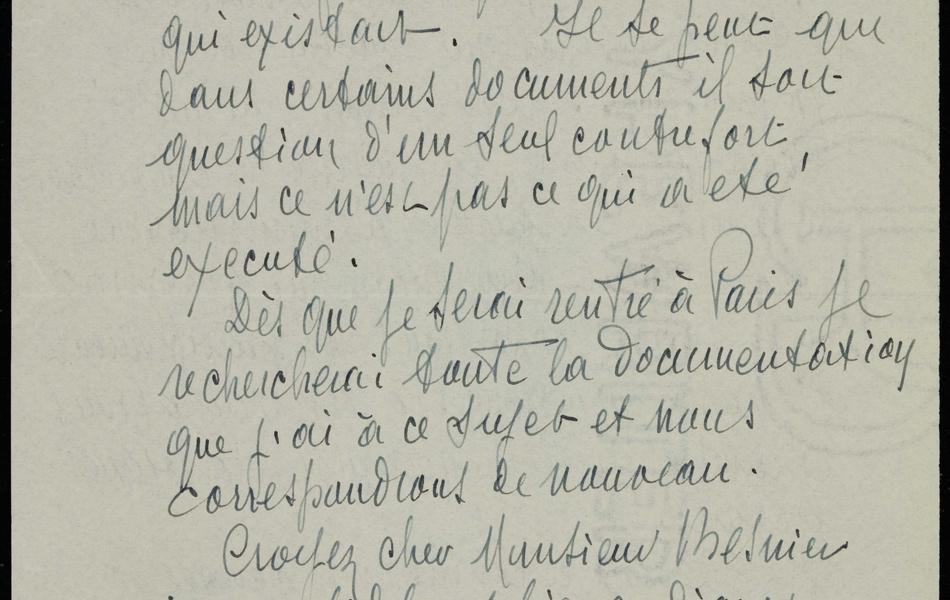 qui existait. Il se peut que
dans certains documents il soit
question d'un seul contrefort
mais ce n'est pas ce qui a été
executé.
Dès que je serai rentré à Paris je
rechercherai toute la documentation
que j'ai à ce sujet et nous
correspondrons de nouveau.
Croyez cher Monsieur Besnier